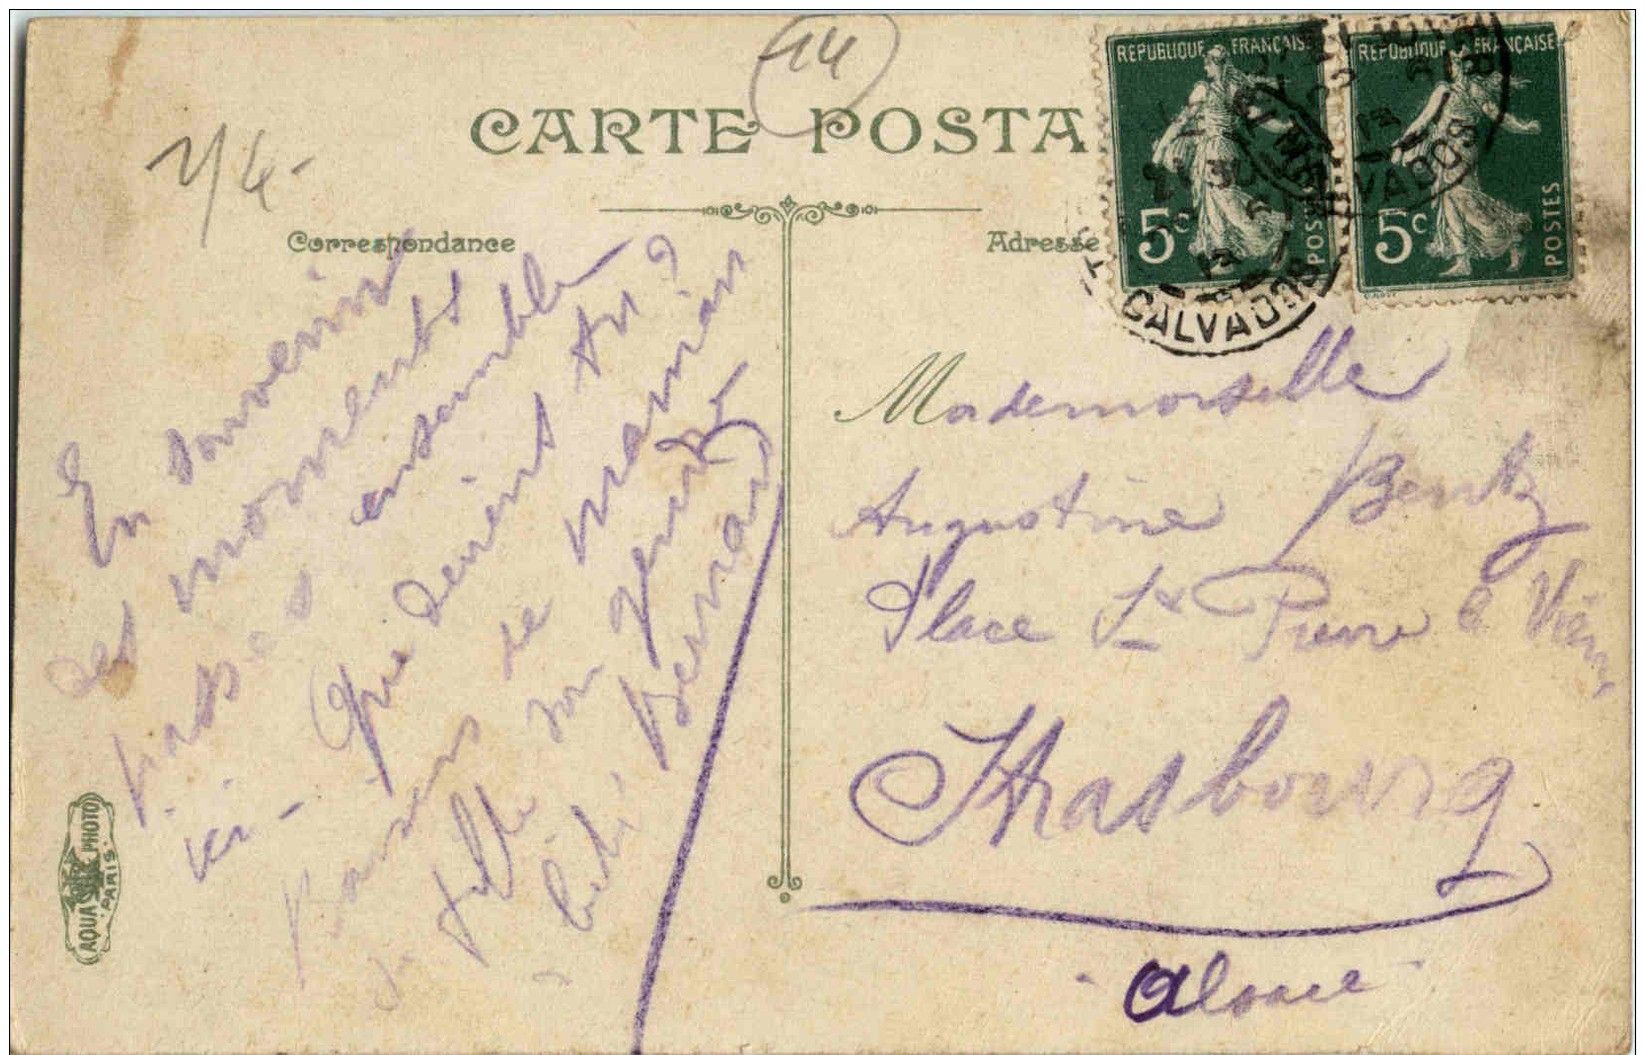 14
CARTE POSTA
1/4-
Correspondance
Adresse
REPUBLIQUE FRANÇAISE
5c
POSTES
REPUBLIQUE FRANÇAISE
5c
POSTES
CALVADOS
CALVADOS
En souvenir
des moments
passés ensemble
ici - Que deviens tu ?
de maman
son
bébé Bernard
Mademoiselle
Augustine Bentz
Place St Pierre le Vieux
Strasbourg
Alsace
AQUA PHOTO
PARIS